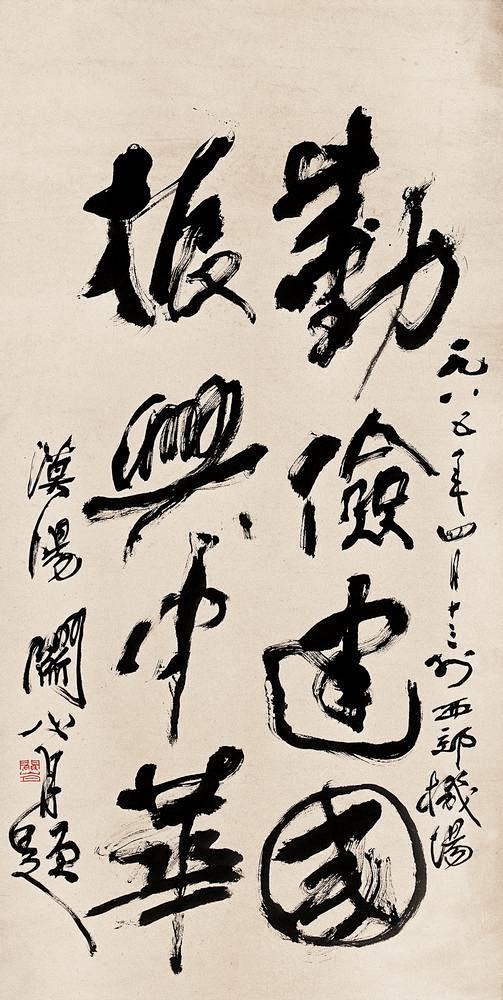 一九八五年四月十三於西郊機場
勤儉建國
振興中華
漠陽關山月題